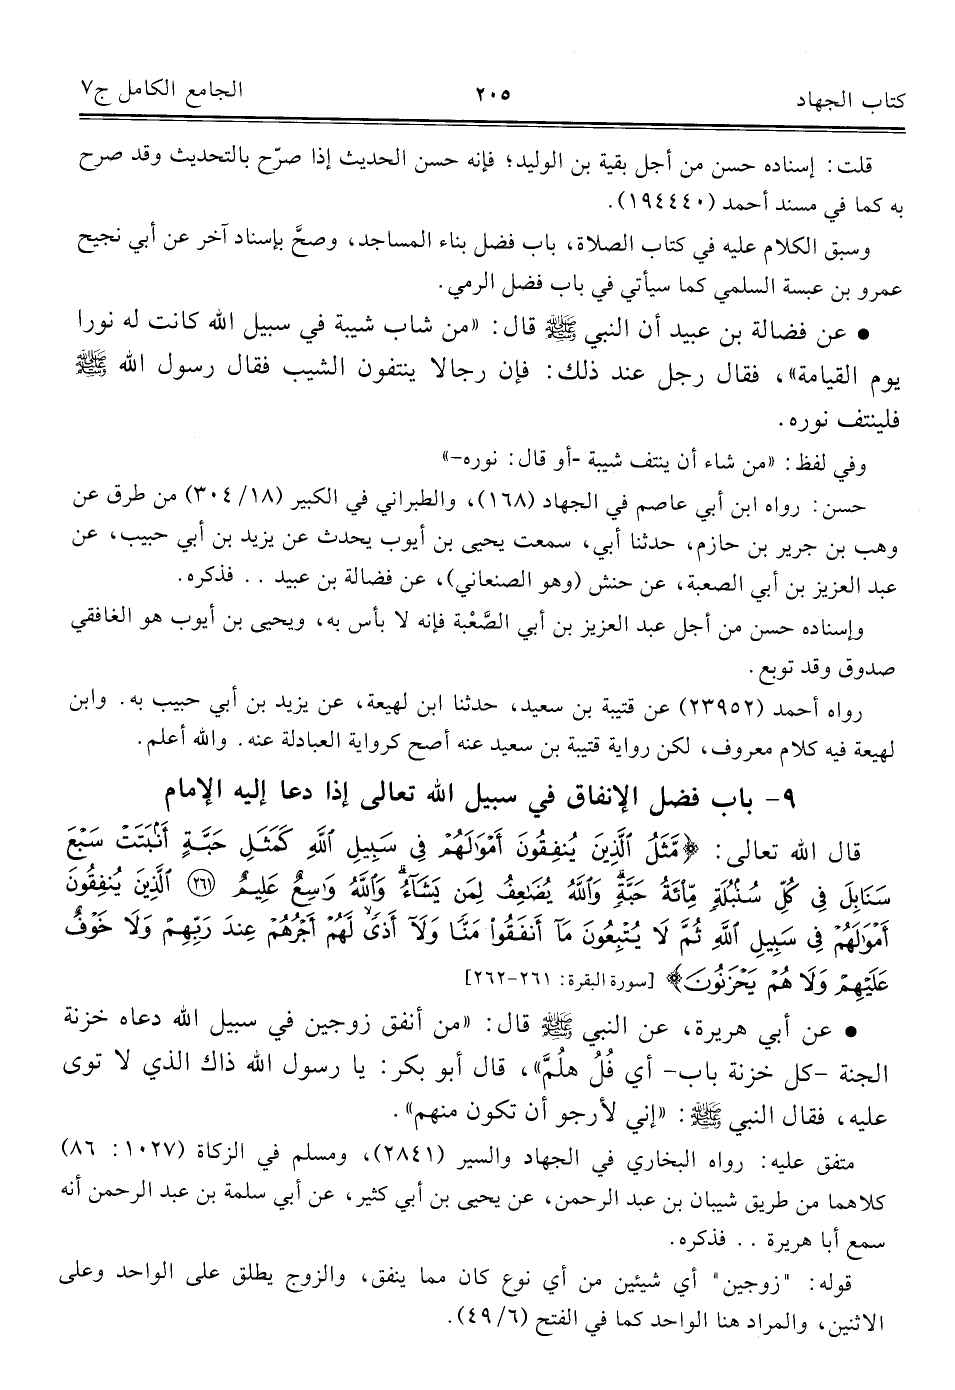 كتاب الجهاد ٢٠٥ الجامع الكامل ج٧
قلت: إسناده حسن من أجل بقية بن الوليد؛ فإنه حسن الحديث إذا صرّح بالتحديث وقد صرح
به كما في مسند أحمد (١٩٤٤٤٠).
وسبق الكلام عليه في كتاب الصلاة، باب فضل بناء المساجد، وصحَّ بإسناد آخر عن أبي نجيح
عمرو بن عبسة السلمي كما سيأتي في باب فضل الرمي.
• عن فضالة بن عبيد أن النبي ﷺ قال: «من شاب شيبة في سبيل الله كانت له نورا
يوم القيامة»، فقال رجل عند ذلك: فإن رجالا ينتفون الشيب فقال رسول الله ﷺ
فلينتف نوره.
وفي لفظ: «من شاء أن ينتف شيبة -أو قال: نوره-»
حسن: رواه ابن أبي عاصم في الجهاد (١٦٨)، والطبراني في الكبير (١٨/ ٣٠٤) من طرق عن
وهب بن جرير بن حازم، حدثنا أبي، سمعت يحيى بن أيوب يحدث عن يزيد بن أبي حبيب، عن
عبد العزيز بن أبي الصعبة، عن حنش (وهو الصنعاني)، عن فضالة بن عبيد .. فذكره.
وإسناده حسن من أجل عبد العزيز بن أبي الصَّعْبة فإنه لا بأس به، ويحيى بن أيوب هو الغافقي
صدوق وقد توبع.
رواه أحمد (٢٣٩٥٢) عن قتيبة بن سعيد، حدثنا ابن لهيعة، عن يزيد بن أبي حبيب به. وابن
لهيعة فيه كلام معروف، لكن رواية قتيبة بن سعيد عنه أصح كرواية العبادلة عنه. والله أعلم.
٩- باب فضل الإنفاق في سبيل الله تعالى إذا دعا إليه الإمام
قال الله تعالى: ﴿مَّثَلُ ٱلَّذِينَ يُنفِقُونَ أَمْوَٰلَهُمْ فِى سَبِيلِ ٱللَّهِ كَمَثَلِ حَبَّةٍ أَنۢبَتَتْ سَبْعَ
سَنَابِلَ فِى كُلِّ سُنۢبُلَةٍ مِّا۟ئَةُ حَبَّةٍ ۗ وَٱللَّهُ يُضَٰعِفُ لِمَن يَشَآءُ ۗ وَٱللَّهُ وَٰسِعٌ عَلِيمٌ (٢٦١) ٱلَّذِينَ يُنفِقُونَ
أَمْوَٰلَهُمْ فِى سَبِيلِ ٱللَّهِ ثُمَّ لَا يُتْبِعُونَ مَآ أَنفَقُوا۟ مَنًّا وَلَآ أَذًى ۙ لَّهُمْ أَجْرُهُمْ عِندَ رَبِّهِمْ وَلَا خَوْفٌ
عَلَيْهِمْ وَلَا هُمْ يَحْزَنُونَ﴾ [سورة البقرة: ٢٦١-٢٦٢]
• عن أبي هريرة، عن النبي ﷺ قال: «من أنفق زوجين في سبيل الله دعاه خزنة
الجنة -كل خزنة باب- أي فُلُ هلُمَّ»، قال أبو بكر: يا رسول الله ذاك الذي لا توى
عليه، فقال النبي ﷺ: «إني لأرجو أن تكون منهم».
متفق عليه: رواه البخاري في الجهاد والسير (٢٨٤١)، ومسلم في الزكاة (١٠٢٧: ٨٦)
كلاهما من طريق شيبان بن عبد الرحمن، عن يحيى بن أبي كثير، عن أبي سلمة بن عبد الرحمن أنه
سمع أبا هريرة .. فذكره.
قوله: "زوجين" أي شيئين من أي نوع كان مما ينفق، والزوج يطلق على الواحد وعلى
الاثنين، والمراد هنا الواحد كما في الفتح (٤٩/٦).